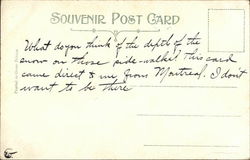 SOUVENIR POST CARD
What do you think of the depth of the
snow on those side-walks? This card
came direct to me from Montreal. I don't
want to be there